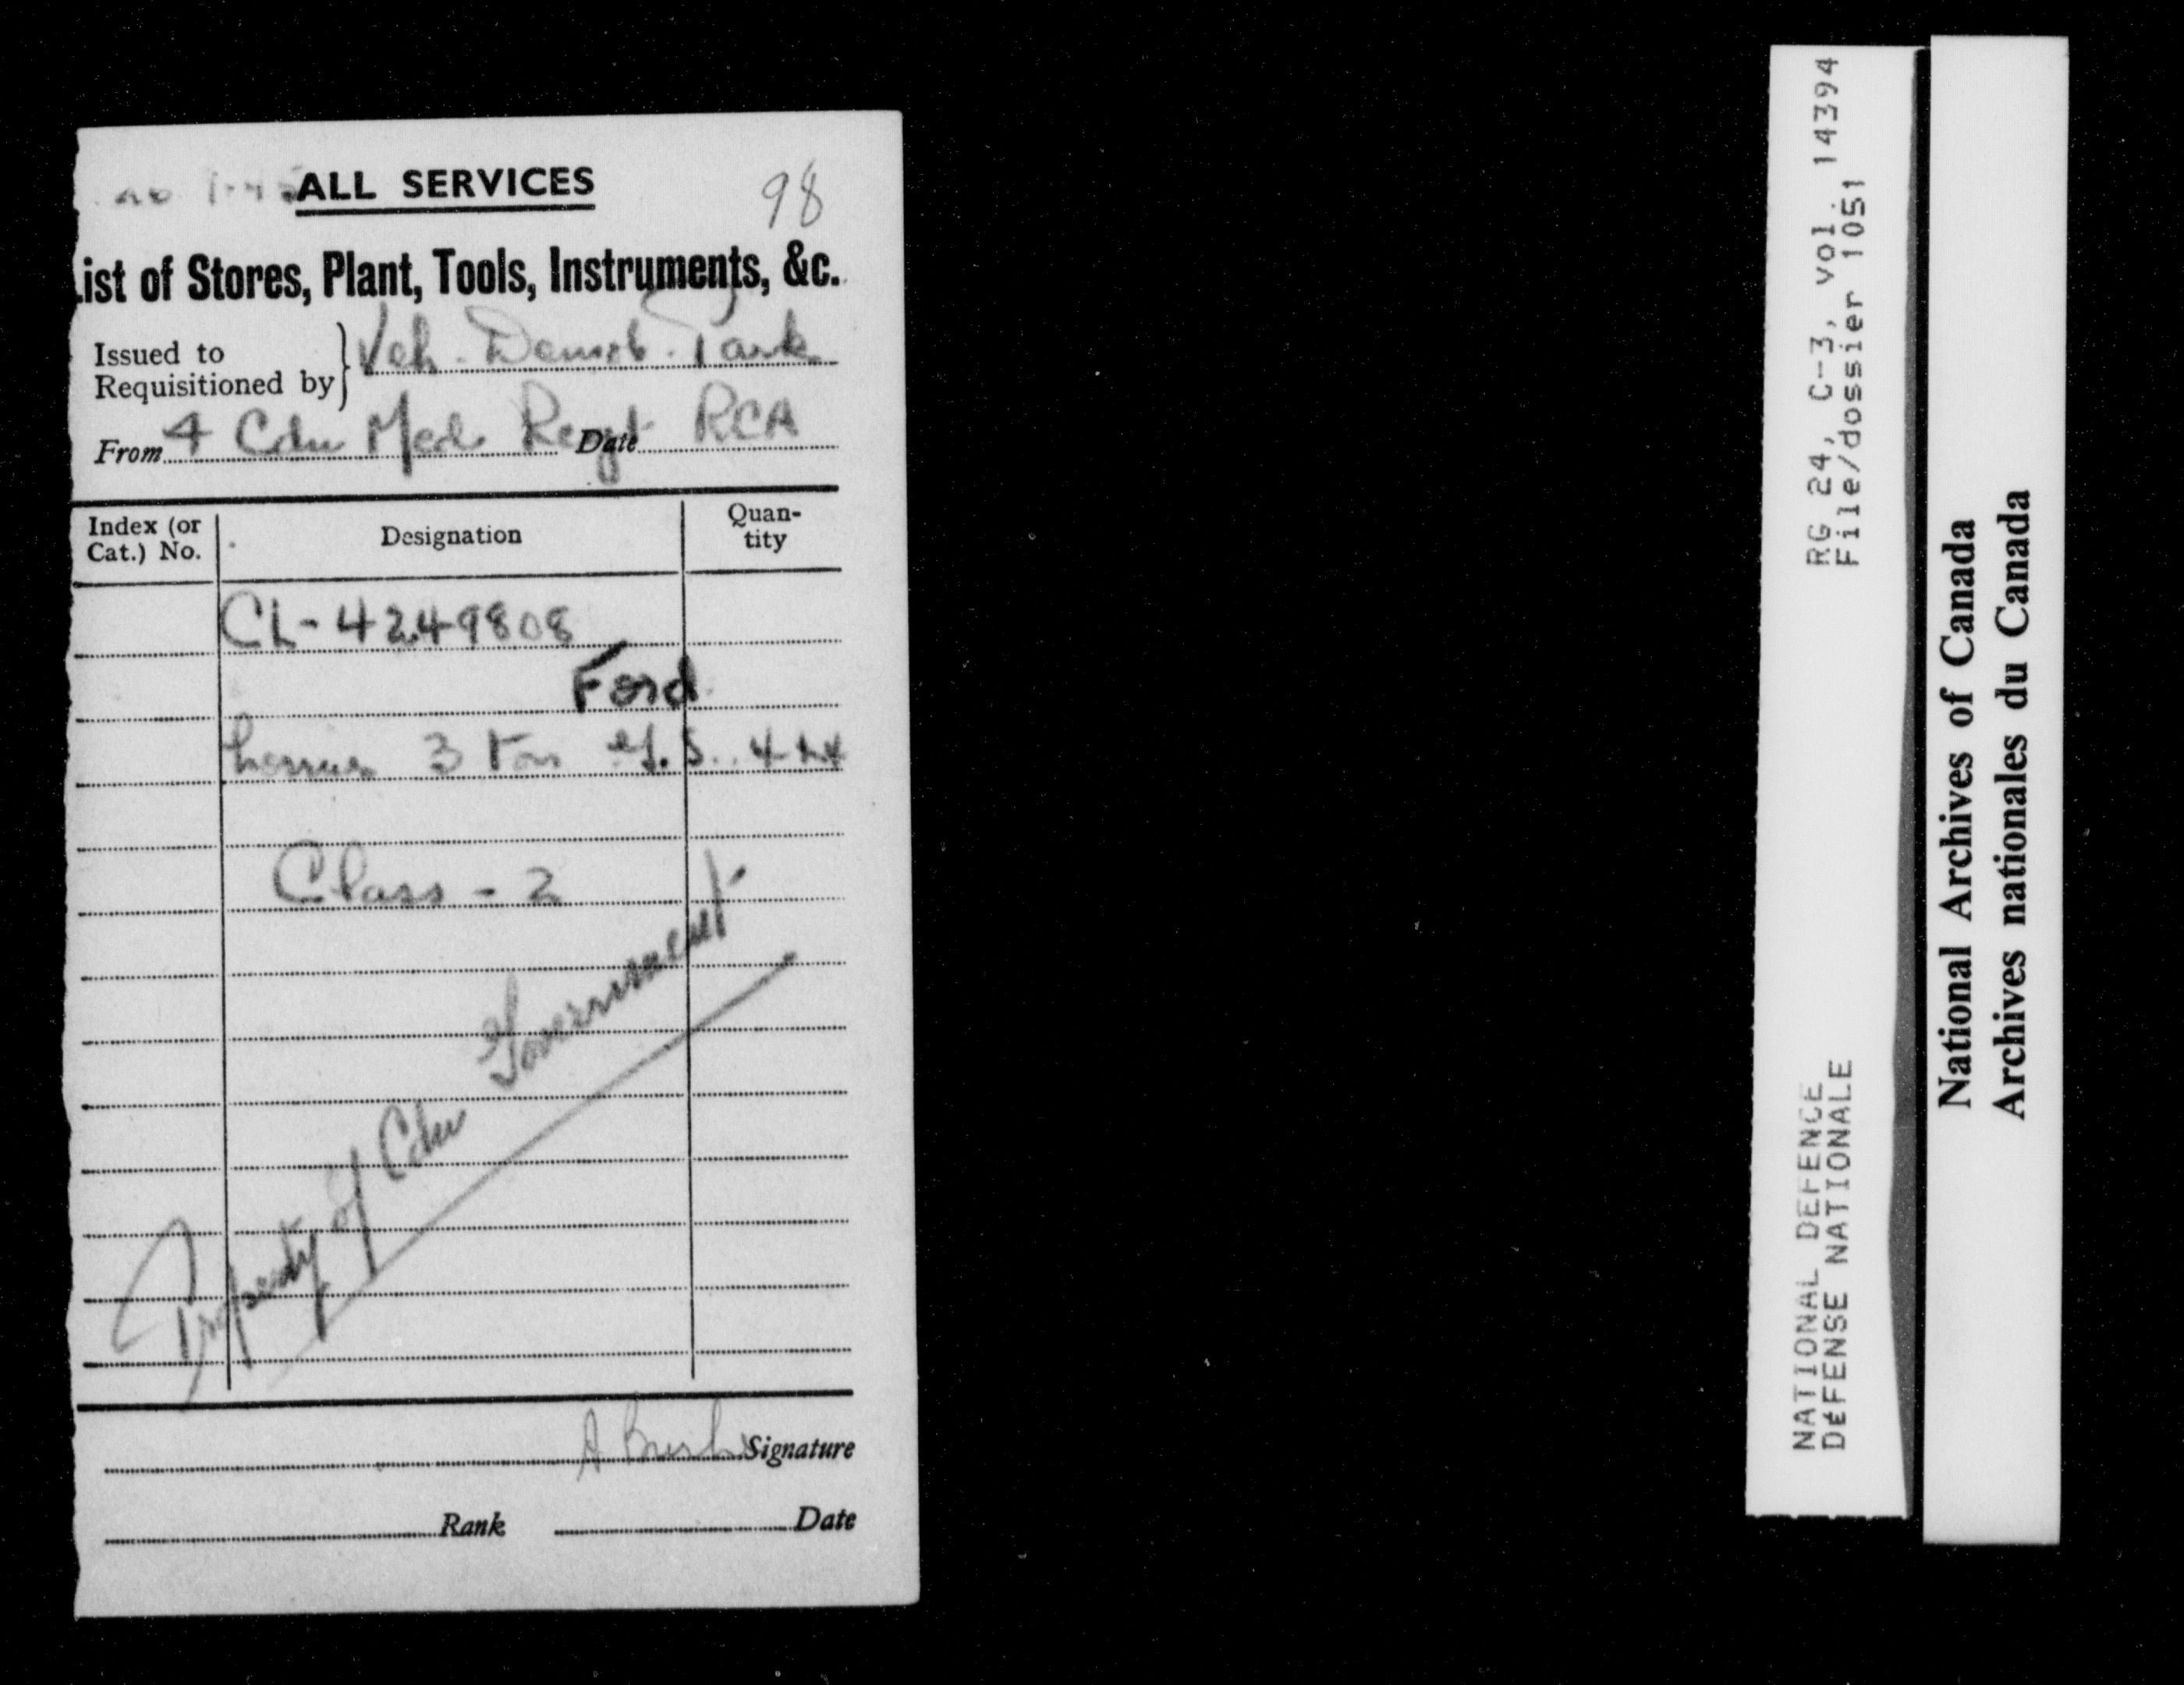 ALL SERVICES
98
List of Stores, Plant, Tools, Instruments, &c.
Issued to
Requisitioned by } Veh. Demob. Park
From 4 Cdn Med. Regt Date RCA
Index (or Cat.) No.
Designation
Quan-
tity
CL-4249808
Ford
Lorries 3 Ton G.S. 4x4
Class - 2
Property of Cdn Government
A Bush Signature
Rank Date
RG 24, C-3, vol. 14394
File/dossier 1051
NATIONAL DEFENCE
DÉFENSE NATIONALE
National Archives of Canada
Archives nationales du Canada